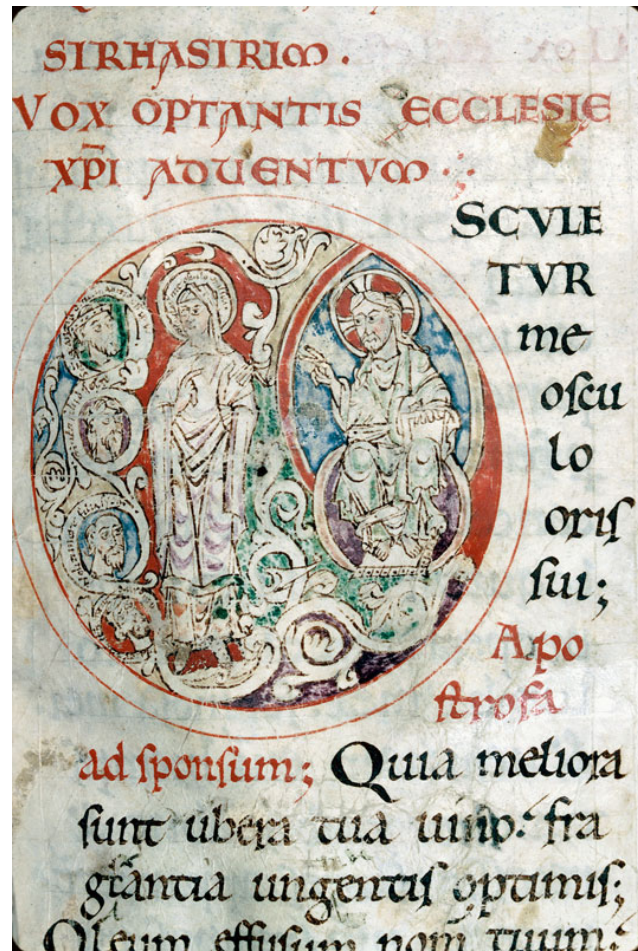 SIRHASIRIM.
VOX OPTANTIS ECCLESIE
XP̄I ADVENTVM
OSCVLE
TVR
me
oscu
lo
oris
sui;
Apo
strofa
ad sponsum; Quia meliora
sunt ubera tua uino. fra
grantia ungentis optimis;
Oleum effusum nom tuum.